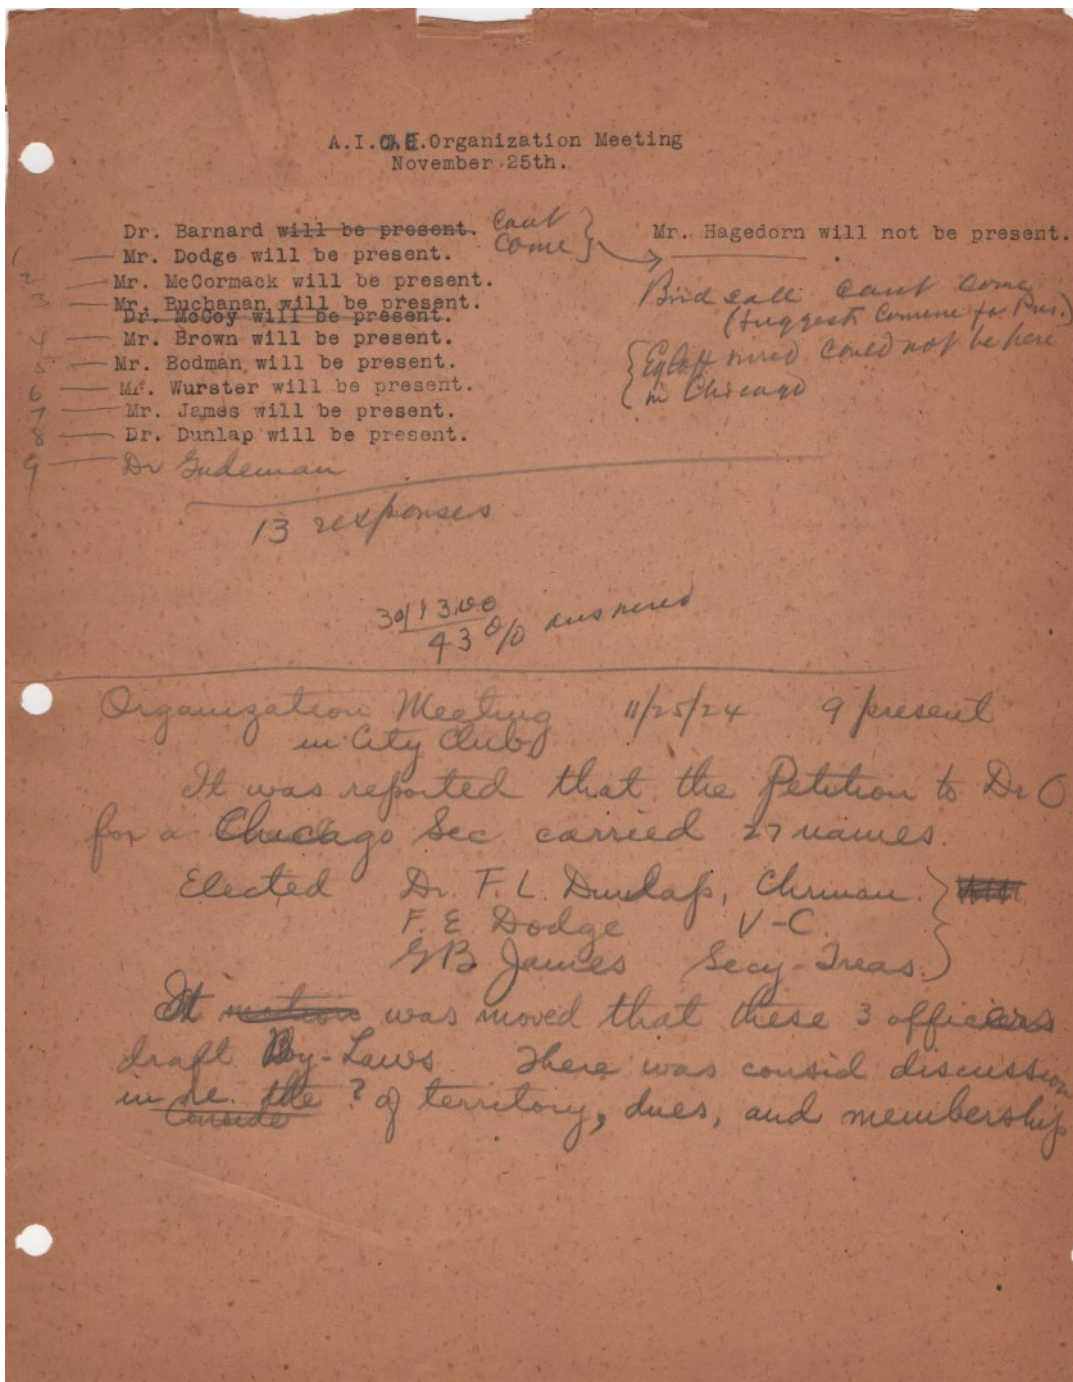 A.I.Ch.E.Organization Meeting
November 25th.
Dr. Barnard will be present. Cant
come
Mr. Hagedorn will not be present.
1 — Mr. Dodge will be present.
2 — Mr. McCormack will be present.
3 — Mr. Buchanan will be present.
Dr. McCoy will be present.
4 — Mr. Brown will be present.
5 — Mr. Bodman will be present.
6 — Mr. Wurster will be present.
7 — Mr. James will be present.
8 — Dr. Dunlap will be present.
9 — Dr Gudeman
Birdsall cant come
(suggests Comme for Pur.)
Egloff wired could not be here
in Chicago
13 responses
30/13.00
43 % answered
Organization Meeting 11/25/24 9 present
in City Club
It was reported that the Petition to Dr O
for a Chicago Sec carried 27 names.
Elected Dr. F. L. Dunlap, Chrman.
F. E. Dodge V-C.
G B James Secy-Treas.
It motion was moved that these 3 officers
draft By-Laws There was consid discussion
in re. the ? of territory, dues, and membership
Conside